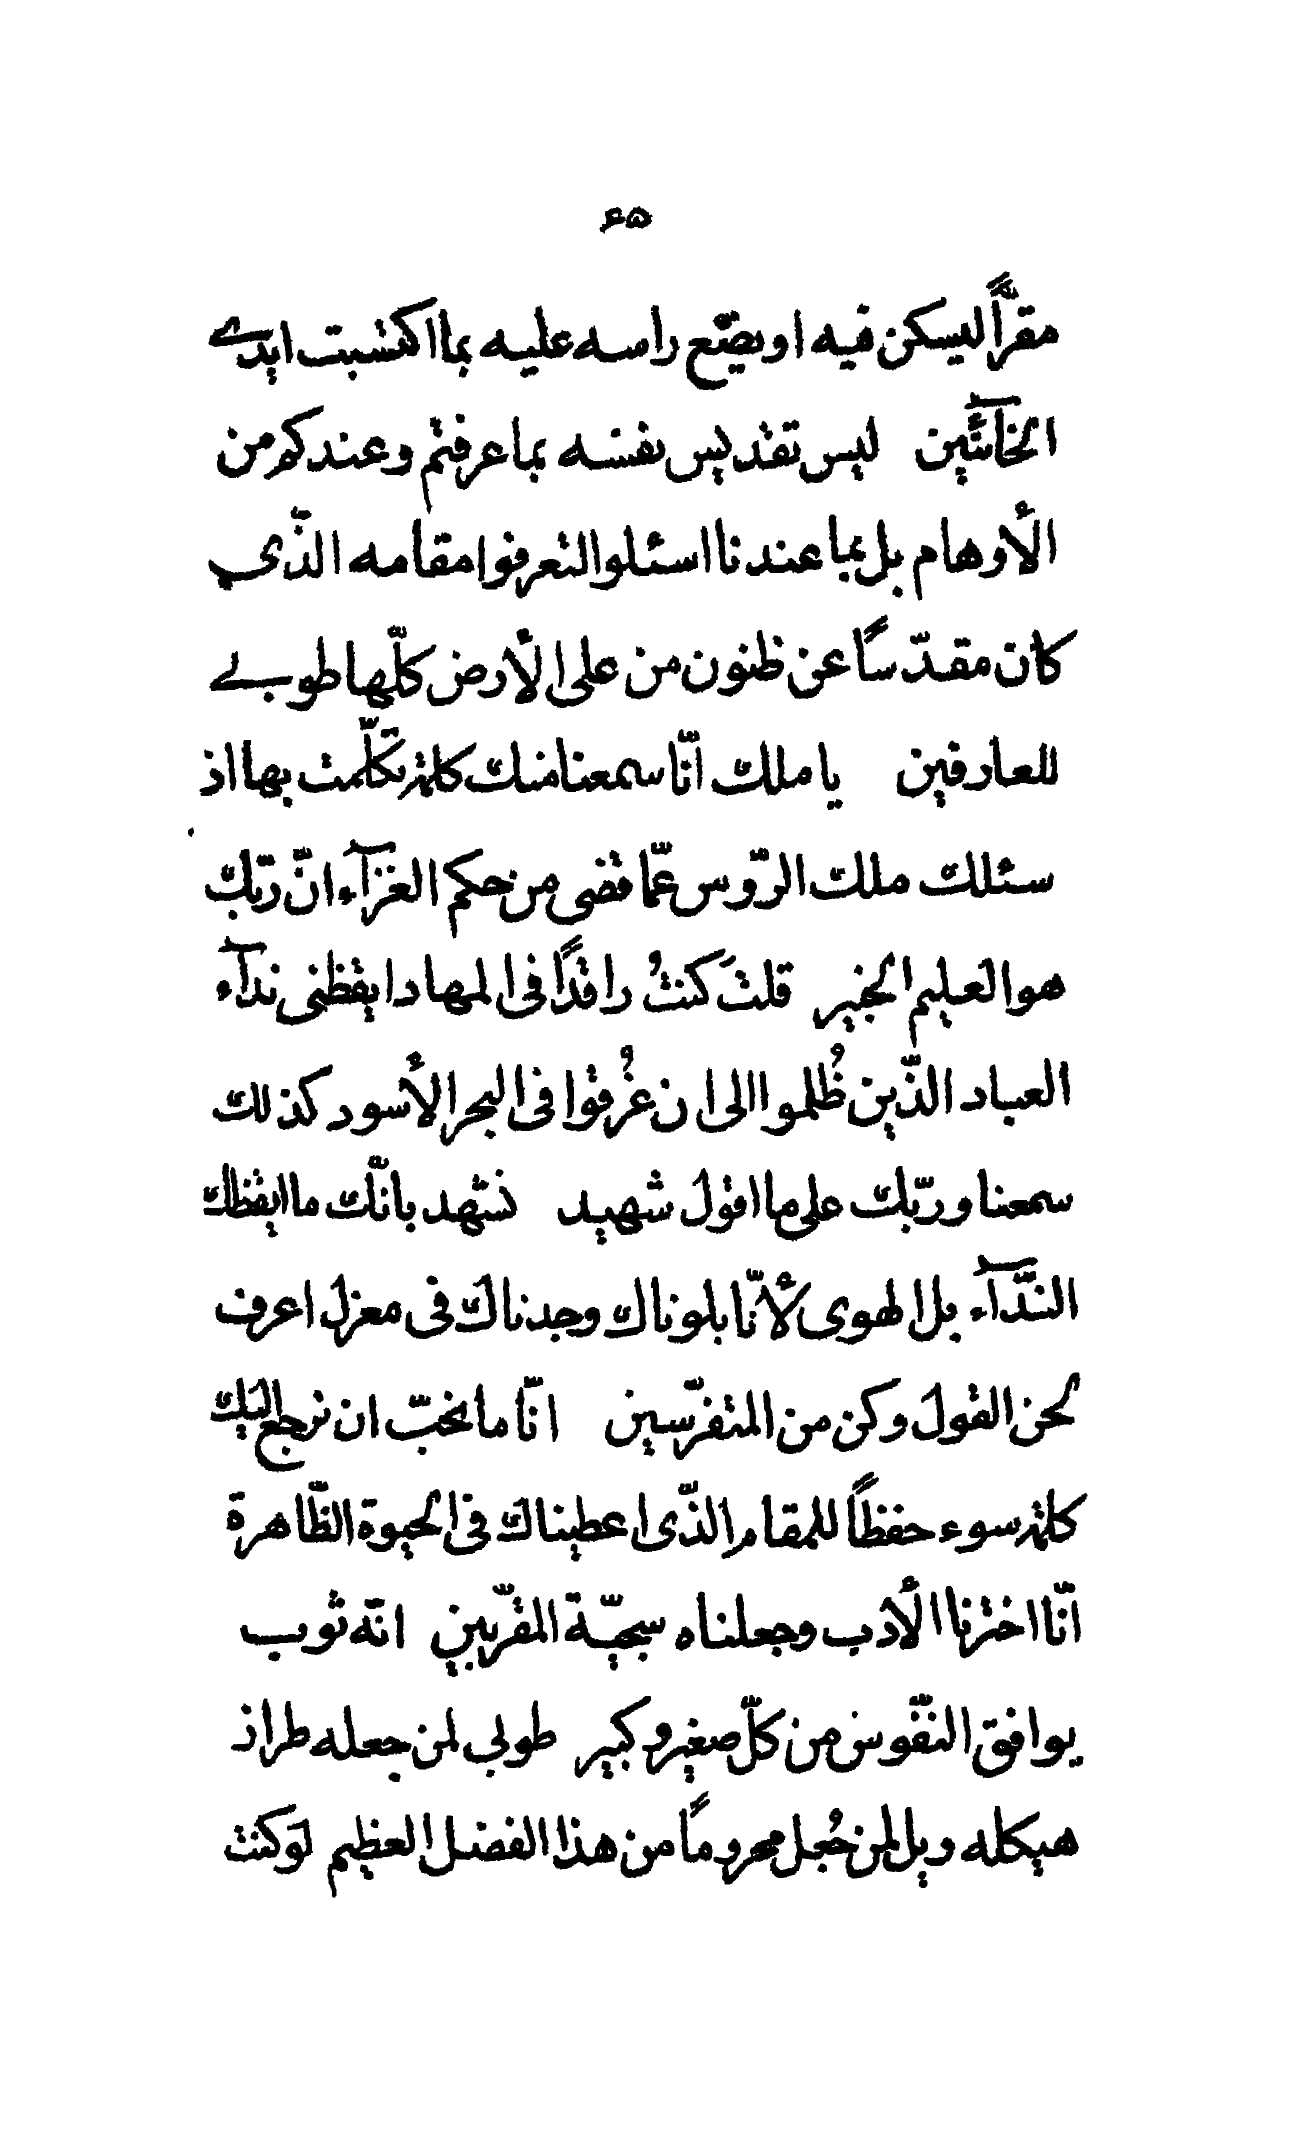 ۶۵
مقرّاً ليسكن فيه او يضع راسه عليه بما اكتسبت ايدى
الخآئنين ليس تقديس نفسه بما عرفتم و عندكم من
الأوهام بل بما عندنا اسئلوا لتعرفوا مقامه الذّى
كان مقدّساً عن ظنون من على الأرض كلّها طوبى
للعارفين يا ملك انّا سمعنا منك كلمة تكلّمت بها اذ
سئلك ملك الرّوس عمّا قضى من حكم الغزآء انّ ربّك
هو العليم الخبير قلتَ كنتُ راقداً فى المهاد ايقظنى ندآء
العباد الذّين ظُلموا الى ان غُرقوا فى البحر الأسود كذلك
سمعنا و ربّك على ما اقول شهيد نشهد بانّك ما ايقظك
النّدآء بل الهوى لأنّا بلوناك وجدناك فى معزل اعرف
لحن القول و كن من المتفرّسين انّا ما نحبّ ان نرجع اليك
كلمة سوء حفظاً للمقام الذّى اعطيناك فى الحيوة الظّاهرة
انّا اخترنا الأدب و جعلناه سجيّة المقرّبين انّه ثوب
يوافق النّفوس من كلّ صغير و كبير طوبى لمن جعله طراز
هيكله ويل لمن جُعل محروماً من هذا الفضل العظيم لو كنت